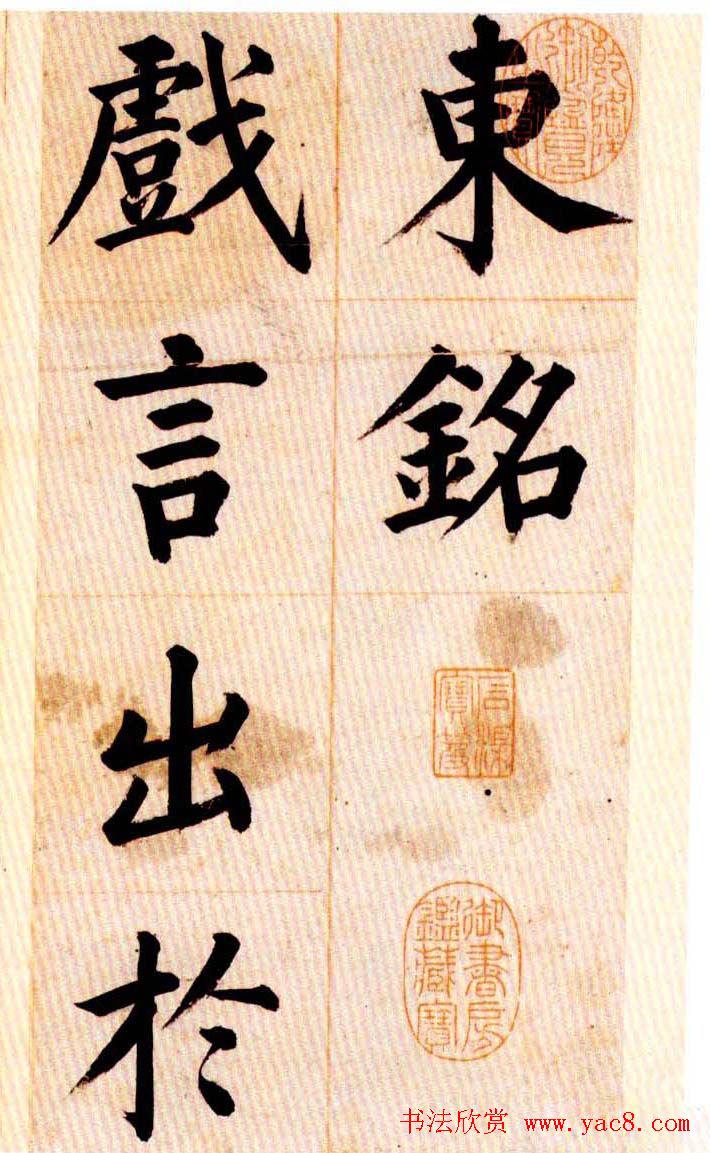 東銘
戲言出於
乾隆御覽之寶
石渠寶笈
御書房鑑藏寶
书法欣赏 www.yac8.com